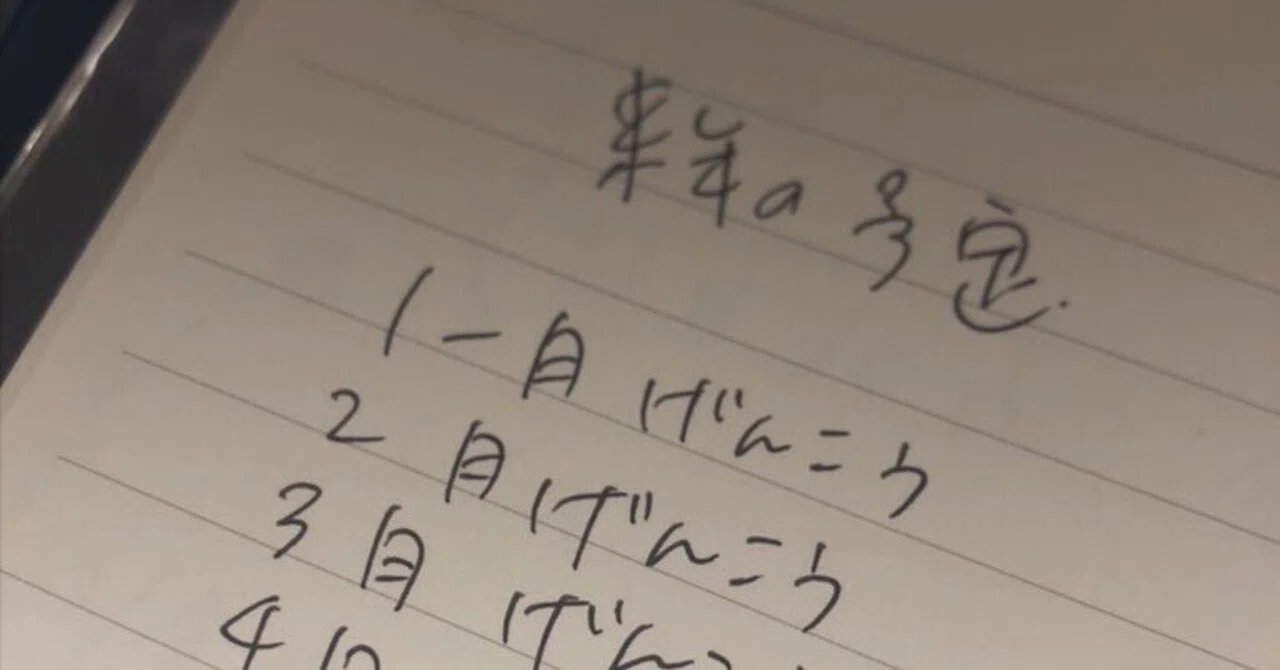 来年の予定.
1一月 げんこう
2 月 げんこう
3 月 げんこ
4 月